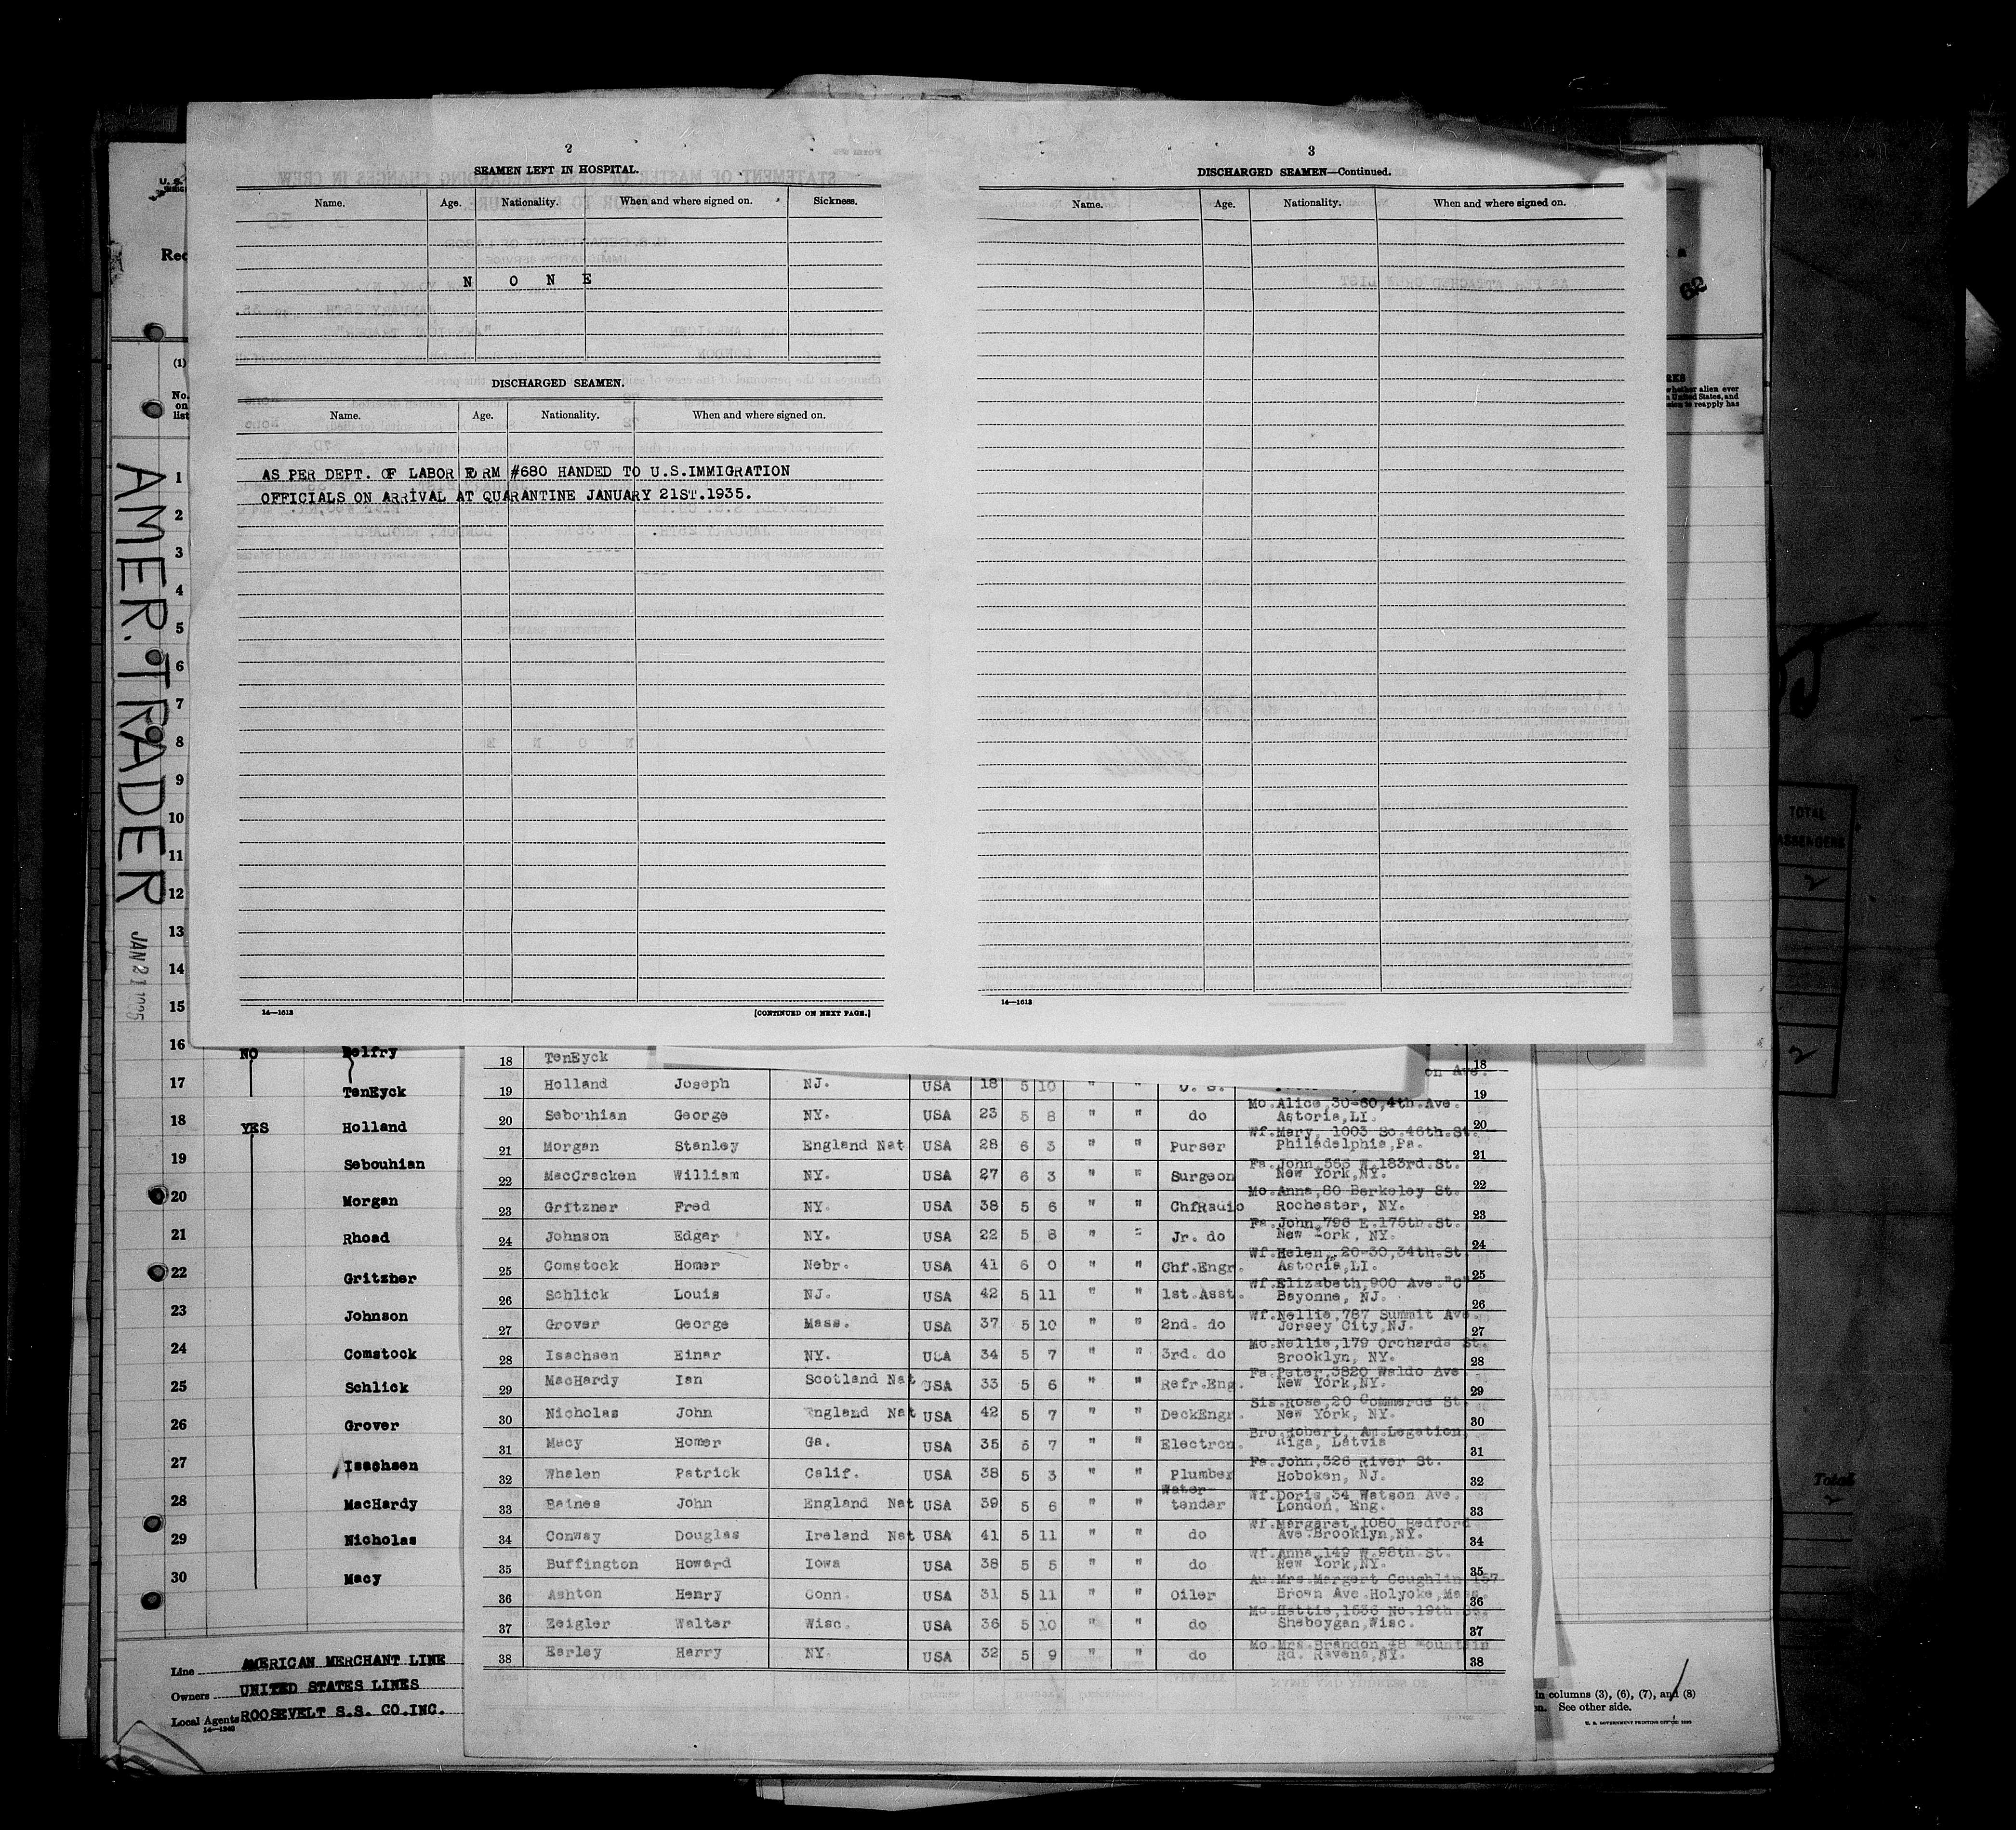 2
SEAMEN LEFT IN HOSPITAL.
Name. Age. Nationality. When and where signed on. Sickness.
N O N E
DISCHARGED SEAMEN.
Name. Age. Nationality. When and where signed on.
AS PER DEPT. OF LABOR FORM #680 HANDED TO U.S.IMMIGRATION
OFFICIALS ON ARRIVAL AT QUARANTINE JANUARY 21ST.1935.
14—1613 [CONTINUED ON NEXT PAGE.]
3
DISCHARGED SEAMEN—Continued.
Name. Age. Nationality. When and where signed on.
14—1613
U. S.
Rec
62
(1)
No.
on
list
AMER. TRADER
JAN 21 1935
1
2
3
4
5
6
7
8
9
10
11
12
13
14
15
16 NO Belfry
17 TenEyck
18 YES Holland
19 Sebouhian
20 Morgan
21 Rhoad
22 Gritzner
23 Johnson
24 Comstock
25 Schlick
26 Grover
27 Isachsen
28 MacHardy
29 Nicholas
30 Macy
Line AMERICAN MERCHANT LINE
Owners UNITED STATES LINES
Local Agents ROOSEVELT S.S. CO.INC.
14—1240
18 TenEyck on Ave. 18
19 Holland Joseph NJ. USA 18 5 10 " " O. S. 19
20 Sebouhian George NY. USA 23 5 8 " " do Mo.Alice,30-60,4th.Ave. Astoria,LI. 20
21 Morgan Stanley England Nat USA 28 6 3 " " Purser Wf.Mary, 1003 So.46th.St. Philadelphia,Pa. 21
22 MacCracken William NY. USA 27 6 3 " " Surgeon Fa.John,565 W.183rd.St. New York,NY. 22
23 Gritzner Fred NY. USA 38 5 6 " " ChfRadio Mo.Anna,80 Berkeley St. Rochester, NY. 23
24 Johnson Edgar NY. USA 22 5 8 " " Jr. do Fa.John,796 E.175th.St. New York, NY. 24
25 Comstock Homer Nebr. USA 41 6 0 " " Chf.Engr. Wf.Helen,.20-30,34th.St Astoria,LI. 25
26 Schlick Louis NJ. USA 42 5 11 " " 1st.Asst. Wf.Elizabeth,900 Ave."C" Bayonne, NJ. 26
27 Grover George Mass. USA 37 5 10 " " 2nd. do Wf.Nellie,787 Summit Ave. Jersey City,NJ. 27
28 Isachsen Einar NY. USA 34 5 7 " " 3rd. do Mo.Nellie,179 Orchards St. Brooklyn, NY. 28
29 MacHardy Ian Scotland Nat USA 33 5 6 " " Refr.Eng. Fa.Peter,3820 Waldo Ave. New York,NY. 29
30 Nicholas John England Nat USA 42 5 7 " " DeckEngr. Sis.Rose,20 Commerce St. New York, NY. 30
31 Macy Homer Ga. USA 35 5 7 " " Electrcn. Bro.Robert, Am.Legation, Riga, Latvia 31
32 Whalen Patrick Calif. USA 38 5 3 " " Plumber Fa.John,326 River St. Hoboken, NJ. 32
33 Baines John England Nat USA 39 5 6 " " Water-tender Wf.Doris,34 Watson Ave. London, Eng. 33
34 Conway Douglas Ireland Nat USA 41 5 11 " " do Wf.Margaret,1080 Bedford Ave.Brooklyn,NY. 34
35 Buffington Howard Iowa USA 38 5 5 " " do Wf.Anna,149 W.98th.St. New York,NY. 35
36 Ashton Henry Conn. USA 31 5 11 " " Oiler Au.Mrs.Margert Coughlin,157 Brown Ave.Holyoke,Mass. 36
37 Zeigler Walter Wisc. USA 36 5 10 " " do Mo.Hattie,1536 No.19th.St. Sheboygan,Wisc. 37
38 Earley Harry NY. USA 32 5 9 " " do Mo.Mrs.Brandon,48 Mountain Rd. Ravena,NY. 38
whether alien ever
United States, and
to reapply has
in columns (3), (6), (7), and (8)
See other side.
U. S. GOVERNMENT PRINTING OFFICE
TOTAL
PASSENGERS
2
2
Total
2